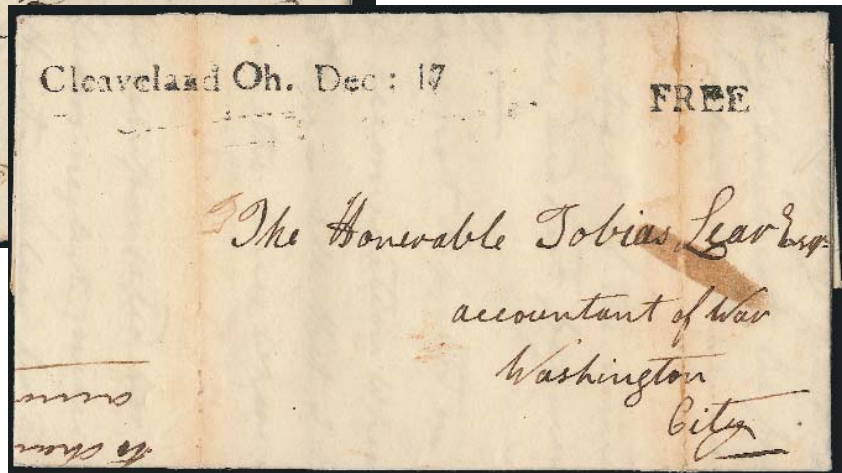 Cleaveland Oh. Dec: 17
FREE
The Honerable Tobias Lear Esqr
accountant of War
Washington
City